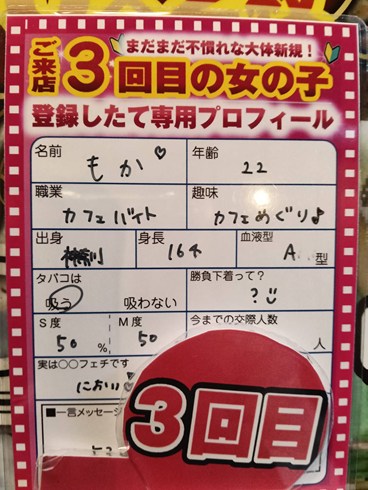 まだまだ不慣れな大体新規！
ご来店3回目の女の子
登録したて専用プロフィール
名前 もか♡
年齢 22
職業 カフェバイト
趣味 カフェめぐり♪
出身 神奈川
身長 164
血液型 A 型
タバコは 吸う 吸わない
勝負下着って？ ?
S度 50 %
M度 50
今までの交際人数 人
実は○○フェチです
におい♡
■一言メッセージ
3回目